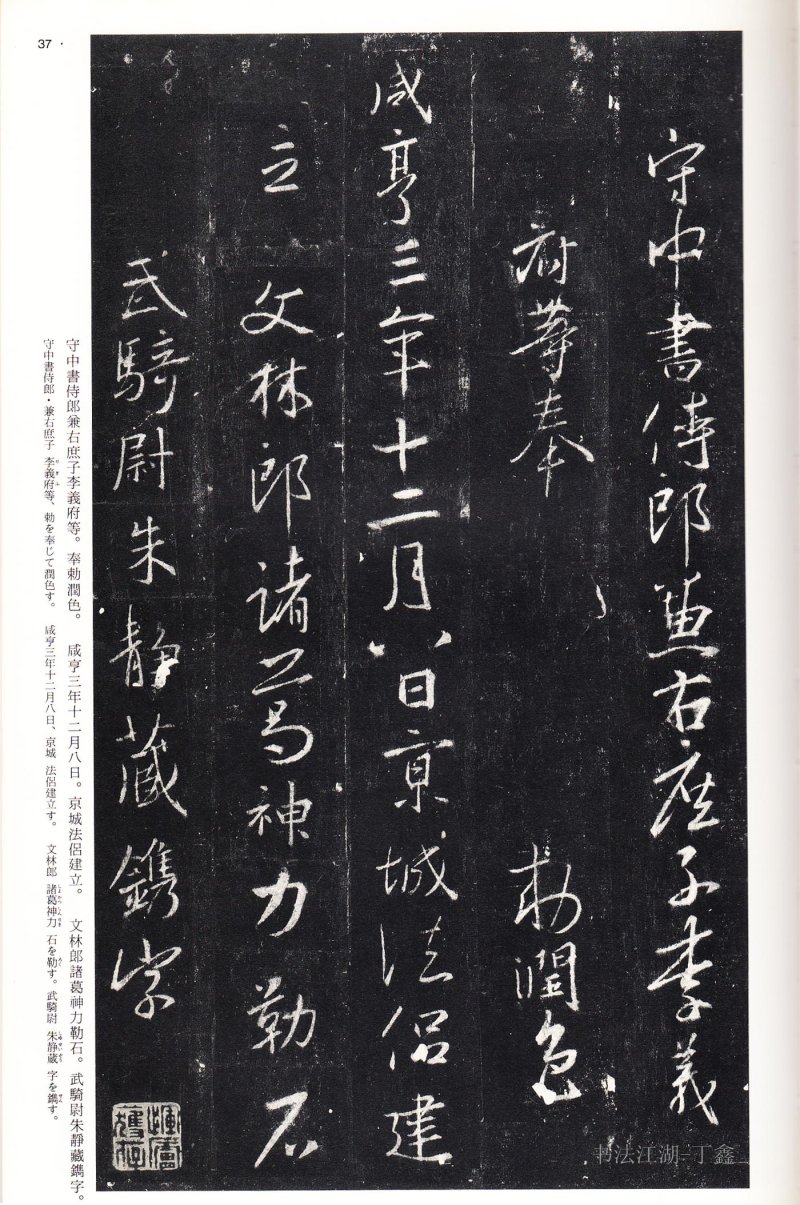 37・
守中書侍郎兼右庶子李義
府等奉
勅潤色
咸亨三年十二月八日京城法侶建
立
文林郎諸葛神力勒石
武騎尉朱静藏鐫字
守中書侍郎兼右庶子李義府等。奉勅潤色。 咸亨三年十二月八日。京城法侶建立。 文林郎諸葛神力勒石。武騎尉朱靜藏鐫字。
守中書侍郎・兼右庶子 李義府等、勅を奉じて潤色す。 咸亨三年十二月八日、京城 法侶建立す。 文林郎 諸葛神力 石を勒す。武騎尉 朱静蔵 字を鐫す。
书法江湖-丁鑫